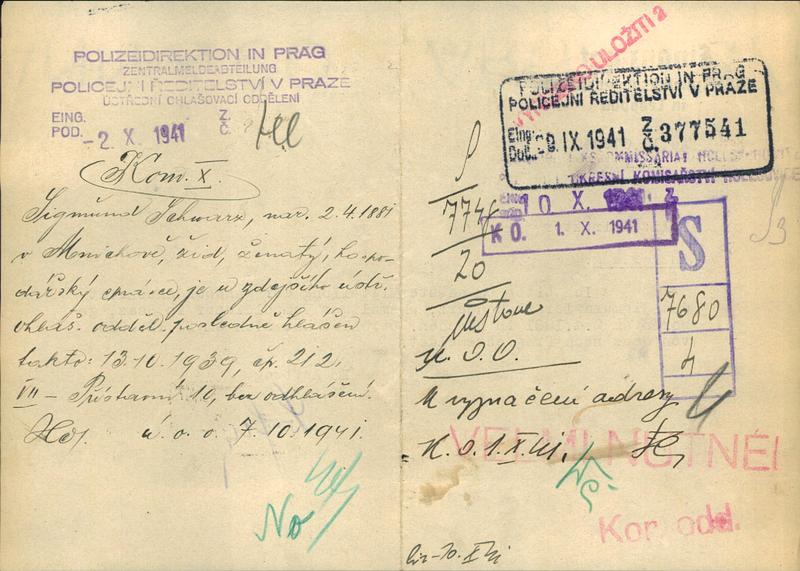 POLIZEIDIREKTION IN PRAG
ZENTRALMELDEABTEILUNG
POLICEJNÍ ŘEDITELSTVÍ V PRAZE
ÚSTŘEDNÍ OHLAŠOVACÍ ODDĚLENÍ
EING. Z.
POD. -2. X. 1941 Č.
Kom. X.
Sigmund Schwarz, nar. 2.4.1881
v Mnichově, žid, ženatý, hospo-
dářský správce, je u zdejšího ústř.
ohlaš. odděl. posledně hlášen
takto: 13.10.1939, čp. 212,
VII – Přístavní 10, bez odhlášení.
ú. o. o. 7.10.1941.
No
ULOŽITI 2
POLIZEIDIREKTION IN PRAG
POLICEJNÍ ŘEDITELSTVÍ V PRAZE
Eing. Z.
Došlo 9. IX. 1941 Č. 377541
OKRESNÍ KOMISAŘSTVÍ
10. X. 1941
K O. 1. X. 1941
S
7746
20
S
7680
4
K vyznačení adresy
K. O. 1. X. 41.
VELMI NUTNÉ!
Kor. odd.